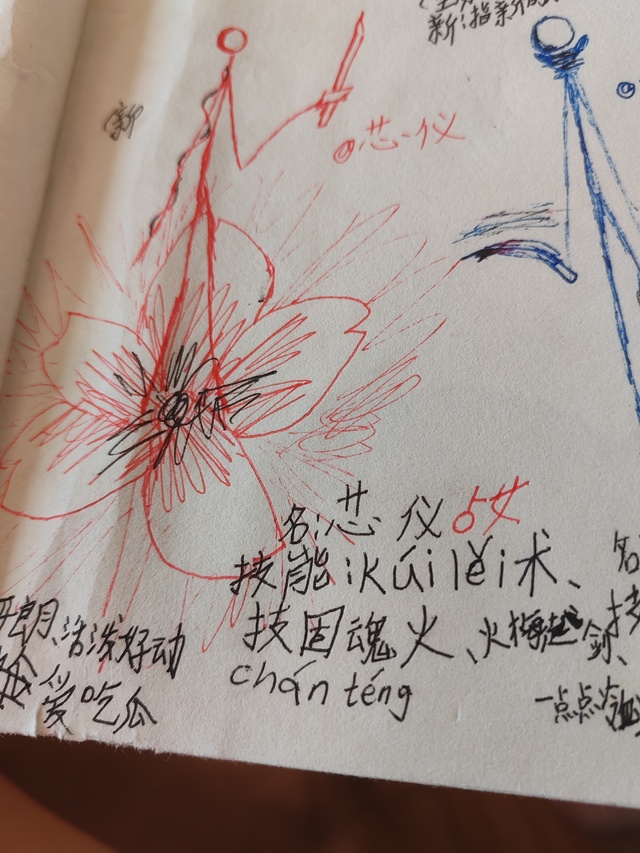 新:指新的
新
芯仪
名:芯仪 女
技能:kúilěi术、
技固魂火、火梅 剑、
chán téng
开朗、活泼好动
爱吃瓜
名
技
一点点